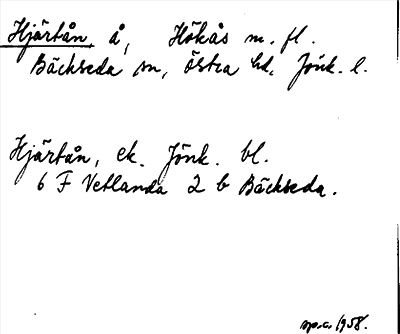 Hjärtån, å, Hökås m. fl.
Bäckseda sn, östra hd, Jönk. l.
Hjärtån, ek. Jönk. bl.
6 F Vetlanda 2 b Bäckseda.
sp.c. 1958.